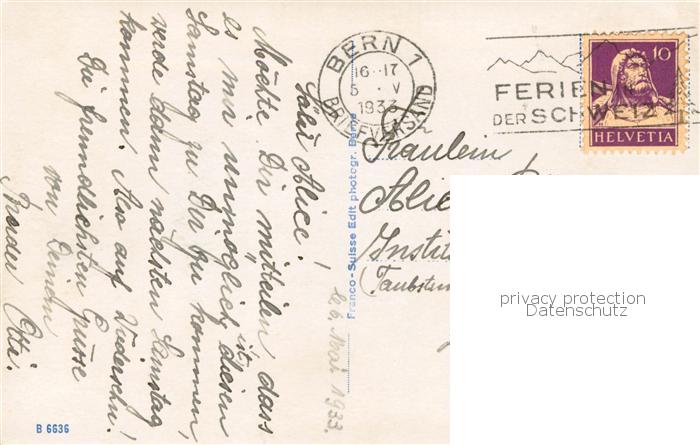 Salü Alice!
Möchte Dir mitteilen dass
es mir unmöglich ist, diesen
Samstag zu Dir zu kommen,
werde dann nächsten Samstag
kommen. Also auf Wiedersehn!
Die freundlichsten Grüsse
von Deinem
Bruder Otti.
6. Mai 1933.
Franco-Suisse Edit photogr. Berne
B 6636
BERN 1
16-17
5 V
1933
BRIEFVERSAND
FERIEN
DER SCHWEIZ
10
HELVETIA
Fräulein
Alice
Instit
(Taubstum
privacy protection
Datenschutz